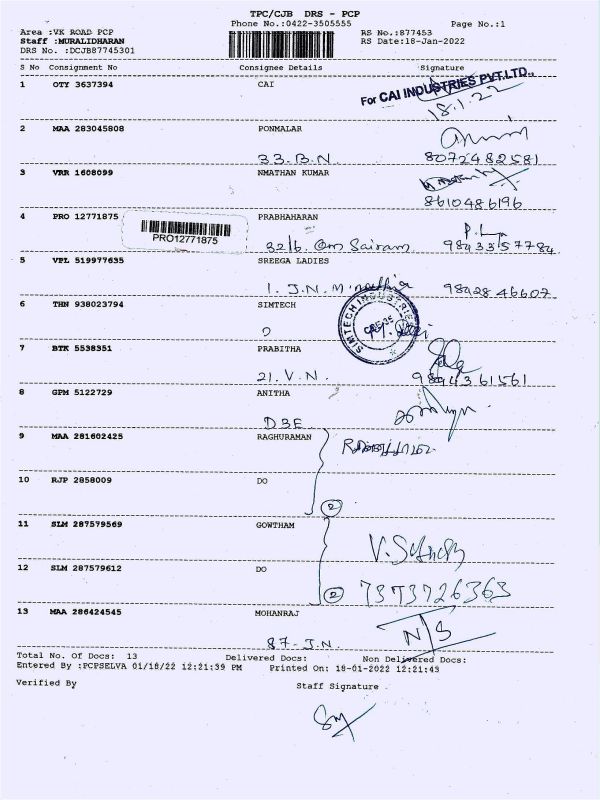 TPC/CJB DRS - PCP
Phone No.:0422-3505555 Page No.:1
Area :VK ROAD PCP RS No.:877453
Staff :MURALIDHARAN RS Date:18-Jan-2022
DRS No. :DCJB87745301
S No Consignment No Consignee Details Signature
1 OTY 3637394 CAI
For CAI INDUSTRIES PVT.LTD.,
18.1.22
2 MAA 283045808 PONMALAR
33.B.N. 8072482581
3 VRR 1608099 NMATHAN KUMAR
8610486196
4 PRO 12771875 PRABHAHARAN
PRO12771875
32/6. Om Sairam 9843357784
5 VPL 519977635 SREEGA LADIES
1. J.N. 9842846607
6 THN 938023794 SIMTECH
SIMTECH INDUSTRIES
7 BTK 5538351 PRABITHA
21. V.N. 9894361561
8 GPM 5122729 ANITHA
DBE
9 MAA 281602425 RAGHURAMAN
10 RJP 2858009 DO
2
11 SLM 287579569 GOWTHAM
12 SLM 287579612 DO
2 7373726363
13 MAA 286424545 MOHANRAJ
87-J.N. N/S
Total No. Of Docs: 13 Delivered Docs: Non Delivered Docs:
Entered By :PCPSELVA 01/18/22 12:21:39 PM Printed On: 18-01-2022 12:21:43
Verified By Staff Signature